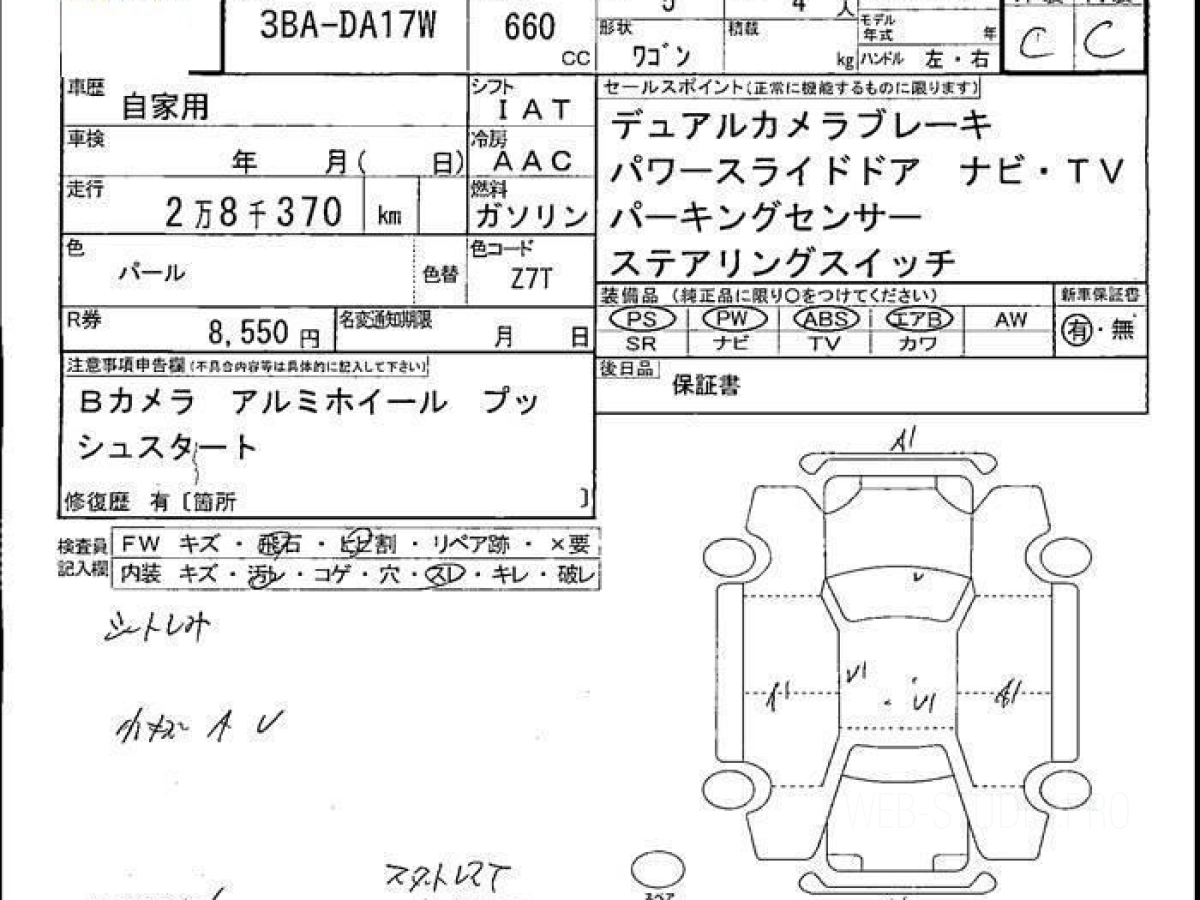 3BA-DA17W 660 CC
形状 ワゴン 積載 kg
モデル年式 年
ハンドル 左・右
C C
車歴 自家用
シフト IAT
車検 年 月( 日)
冷房 AAC
走行 2万8千370 km
燃料 ガソリン
色 パール 色替
色コード Z7T
R券 8,550円
名変通知期限 月 日
セールスポイント(正常に機能するものに限ります)
デュアルカメラブレーキ
パワースライドドア ナビ・TV
パーキングセンサー
ステアリングスイッチ
装備品 (純正品に限り〇をつけてください)
新車保証書
PS PW ABS エアB AW
SR ナビ TV カワ
有・無
後日品 保証書
注意事項申告欄(不具合内容等は具体的に記入して下さい)
Bカメラ アルミホイール プッ
シュスタート
修復歴 有〔箇所 〕
検査員記入欄
FW キズ・飛石・ヒビ割・リペア跡・×要
内装 キズ・汚れ・コゲ・穴・スレ・キレ・破レ
シートしみ
A1
スペア
WEB-STUDIPRO